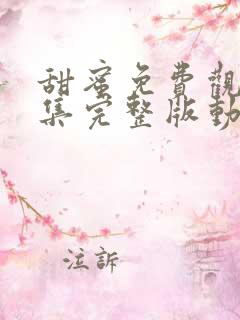 甜蜜免費觀
集完整版動
注訴